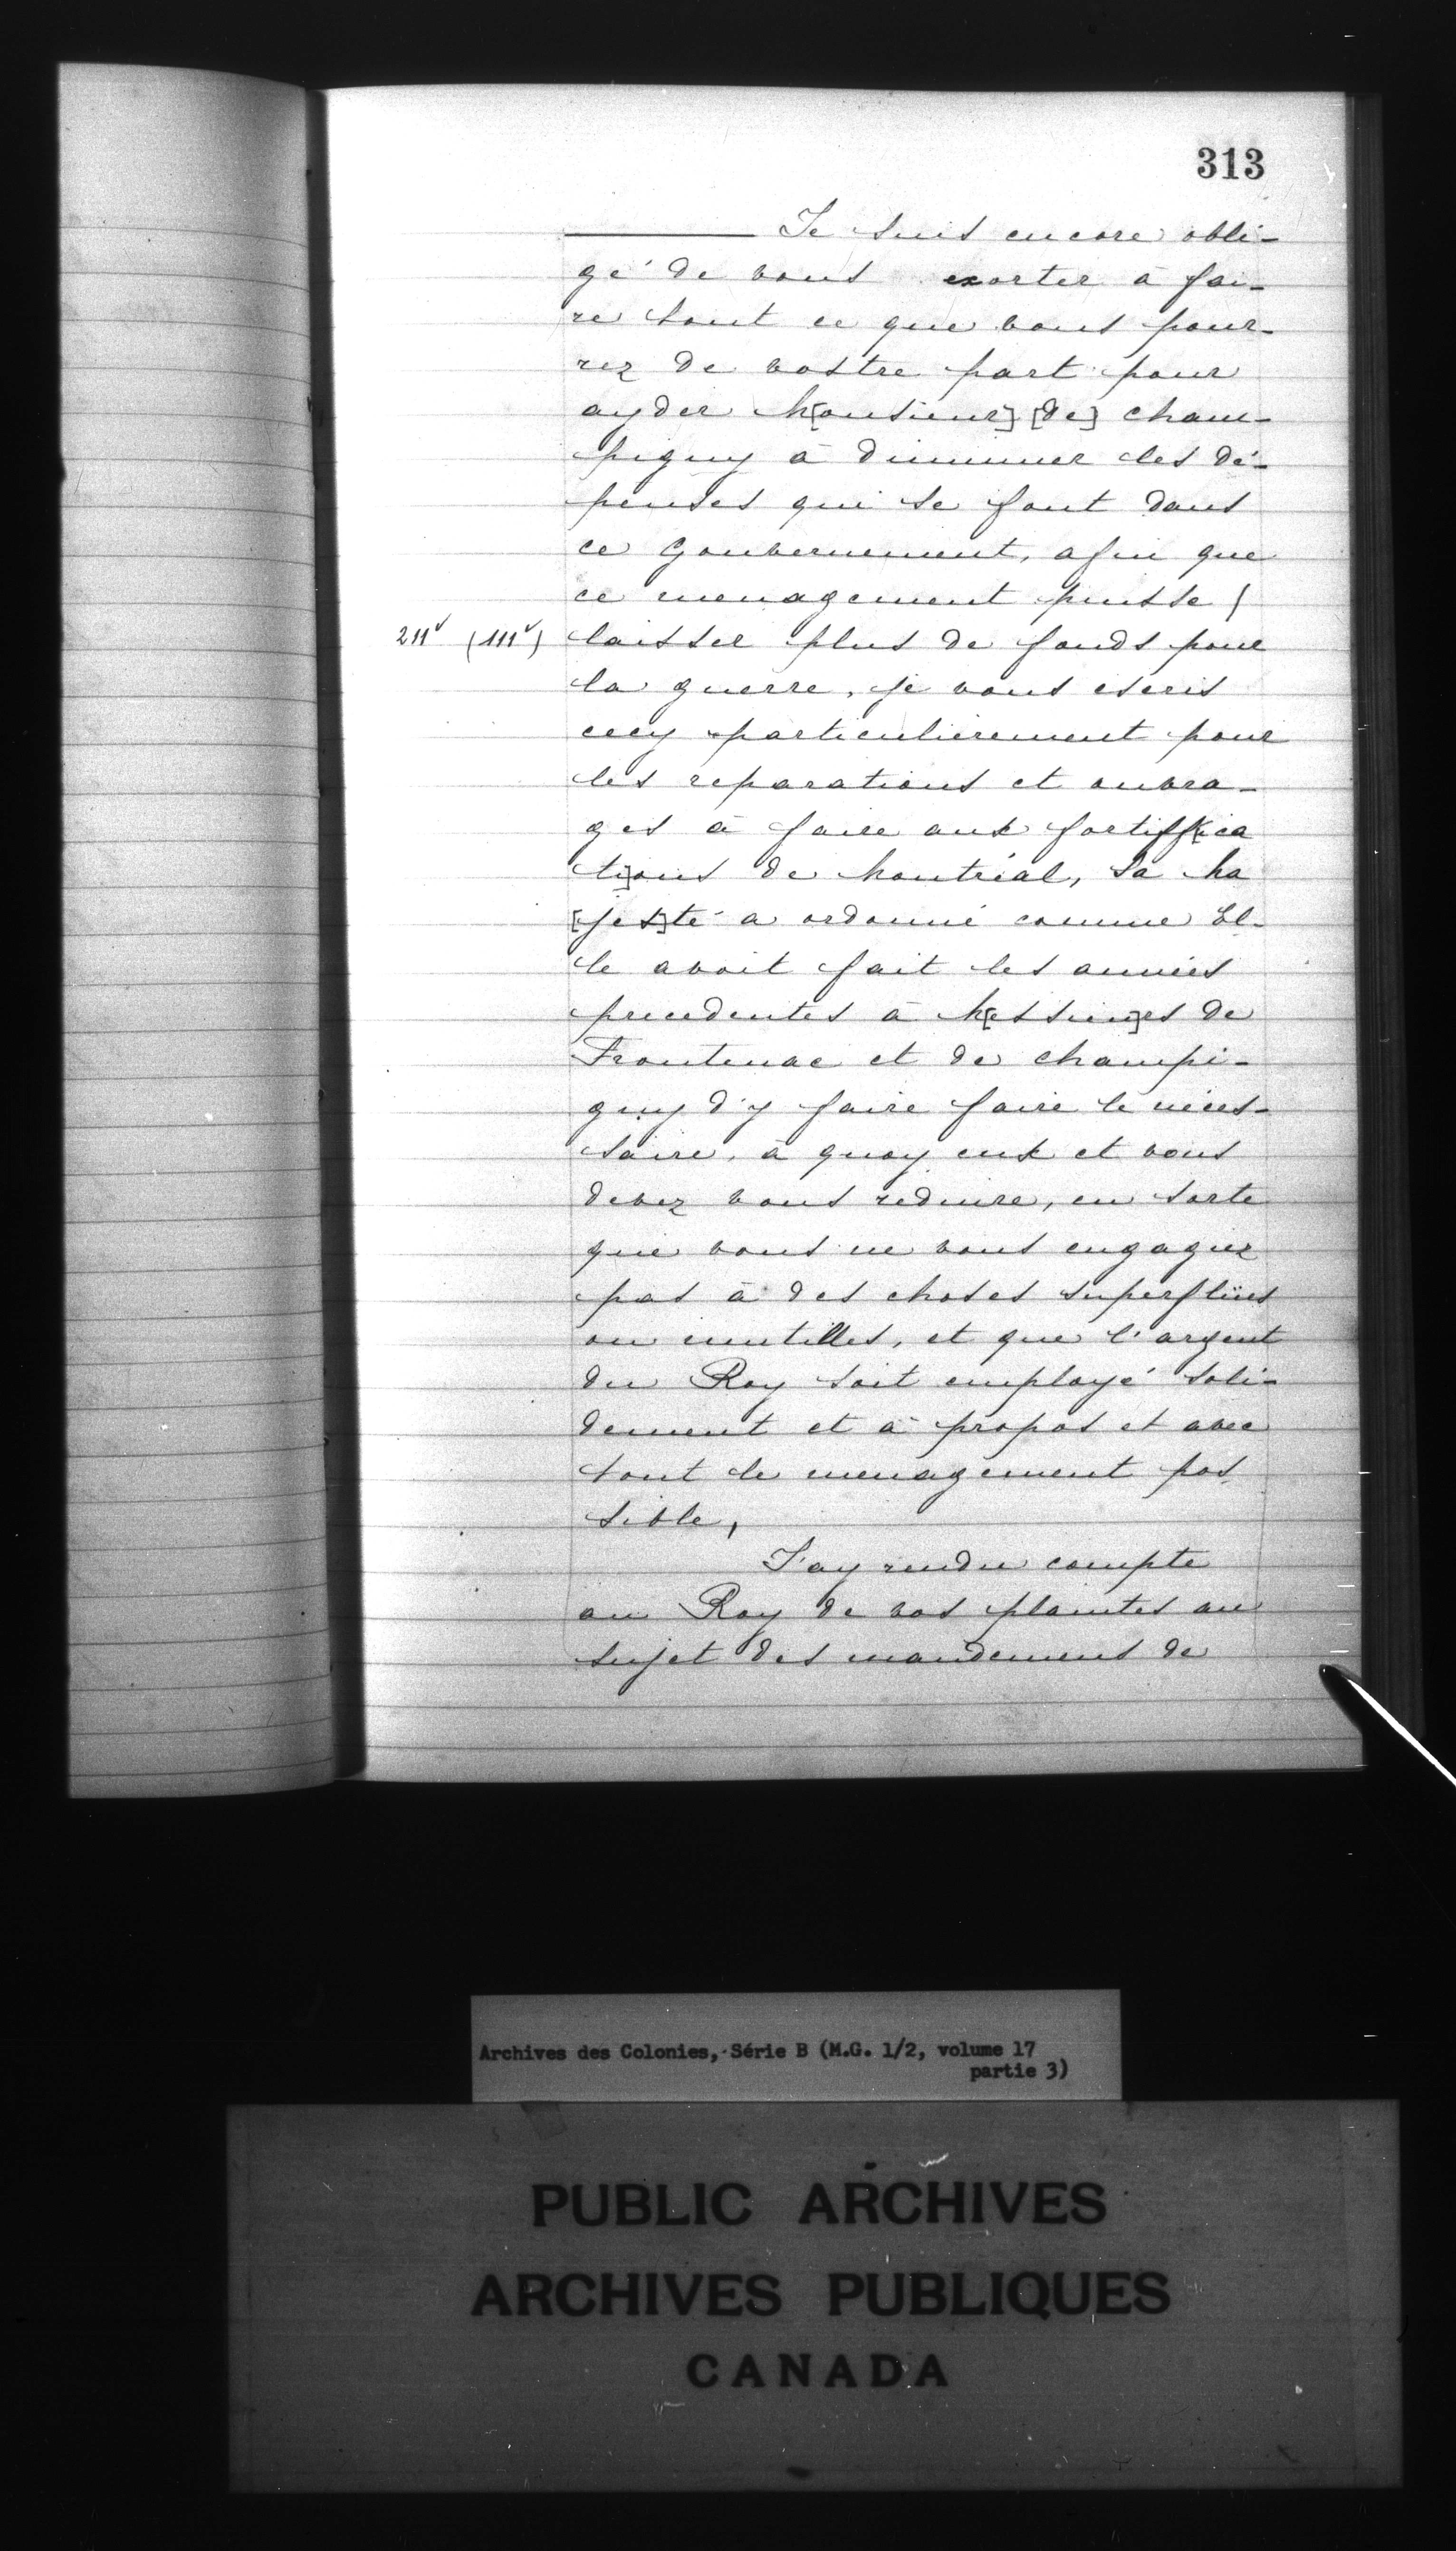 313
Je suis encore obli-
gé de vous exorter à fai-
re tout ce que vous pour-
rez de vostre part pour
ayder M[onsieur] [de] Cham-
pigny à diminuer les dé-
penses qui se font dans
ce Gouvernement, afin que
ce menagement puisse /
211v (111v) laisser plus de fonds pour
la guerre, je vous escris
cecy particulierement pour
les reparations et ouvra-
ges à faire aux fortiff[ica
ti]ons de Montréal, Sa Ma
[jes]té a ordonné comme El-
le avoit fait les années
precedentes à M[essieu]rs de
Frontenac et de Champi-
gny d'y faire faire le néces-
saire, à quoy eux et vous
devez vous réduire, en sorte
que vous ne vous engagiez
pas à des choses superflües
ou inutilles, et que l'argent
du Roy soit employé soli-
dement et à propos et avec
tout le menagement pos
sible,
J'ay rendu compte
au Roy de vos plaintes au
sujet des mandemens de
Archives des Colonies, Série B (M.G. 1/2, volume 17
partie 3)
PUBLIC ARCHIVES
ARCHIVES PUBLIQUES
CANADA